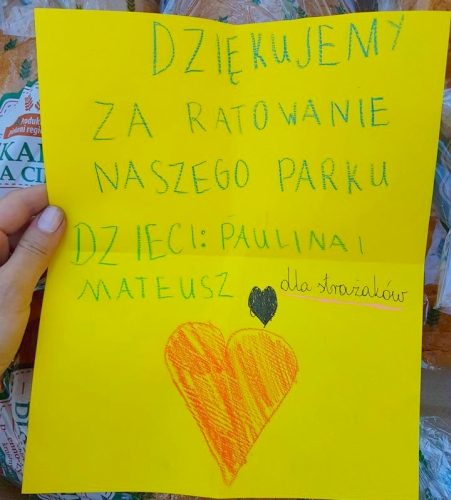 DZIĘKUJEMY
ZA RATOWANIE
NASZEGO PARKU
DZIECI: PAULINA I
MATEUSZ
dla strażaków